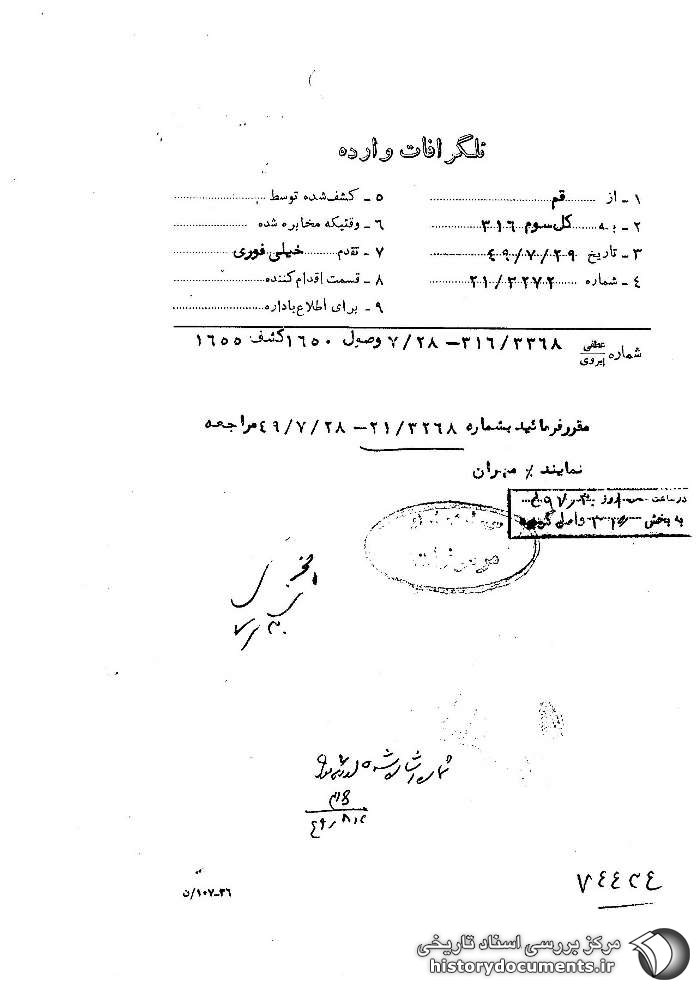 تلگرافات وارده
۱ - از قم
۲ - به کل سوم ۳۱۶
۳ - تاریخ ۴۹/۷/۲۹
۴ - شماره ۲۱/۳۲۷۲
۵ - کشف شده توسط
۶ - وقتیکه مخابره شده
۷ - تقدم خیلی فوری
۸ - قسمت اقدام کننده
۹ - برای اطلاع باداره
شماره عطفی پیروی ۳۱۶/۳۳۶۸ - ۷/۲۸ وصول ۱۶۵۰ کشف ۱۶۵۵
مقرر فرمائید بشماره ۲۱/۳۲۶۸ - ۴۹/۷/۲۸ مراجعه
نمایند ٪ مهران
در ساعت روز
به بخش واصل گردید
۷۴۴۲۴
۳۶-۱۰۷/ن
مرکز بررسی اسناد تاریخی
historydocuments.ir